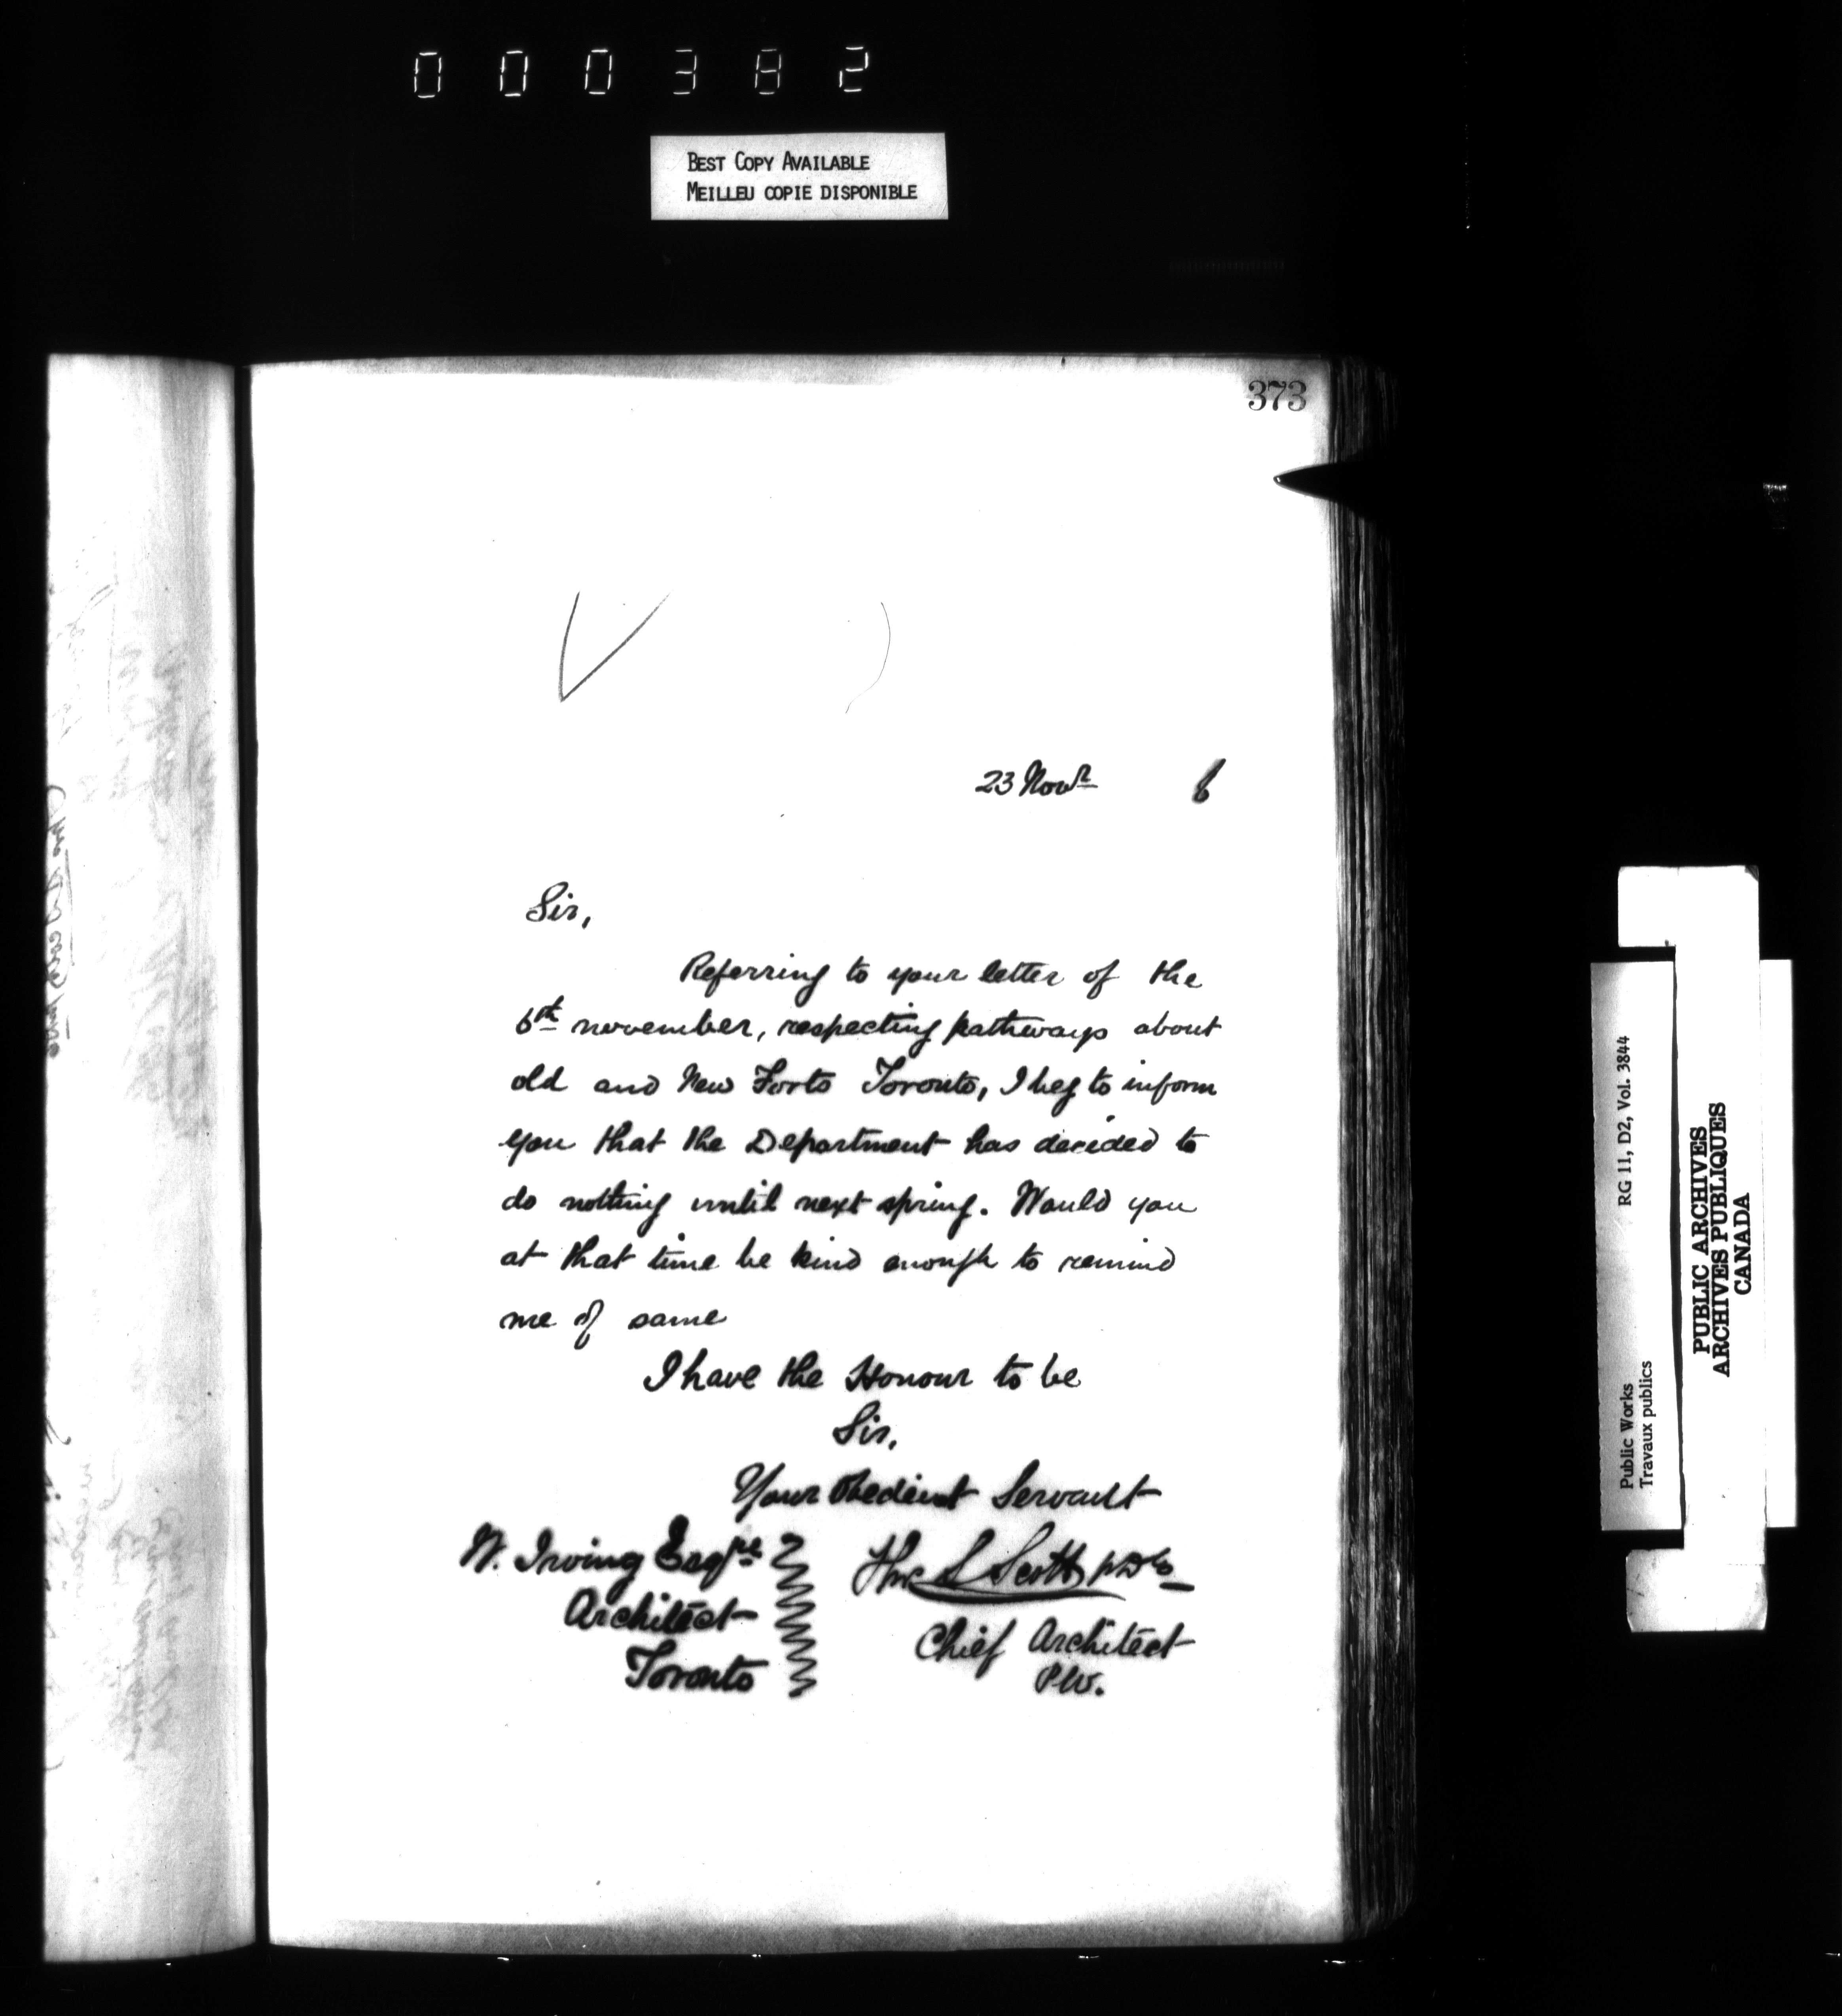 000382
BEST COPY AVAILABLE
MEILLEU COPIE DISPONIBLE
373
23 Novr 6
Sir,
Referring to your letter of the
6th november, respecting pathways about
old and New Forts Toronto, I beg to inform
you that the Department has decided to
do nothing until next spring. Would you
at that time be kind enough to remind
me of same
I have the Honour to be
Sir,
Your Obedient Servant
W. Irving Esqre
Architect
Toronto
Thos S Scott
Chief Architect
P.W.
Public Works
Travaux publics
RG 11, D2, Vol. 3844
PUBLIC ARCHIVES
ARCHIVES PUBLIQUES
CANADA